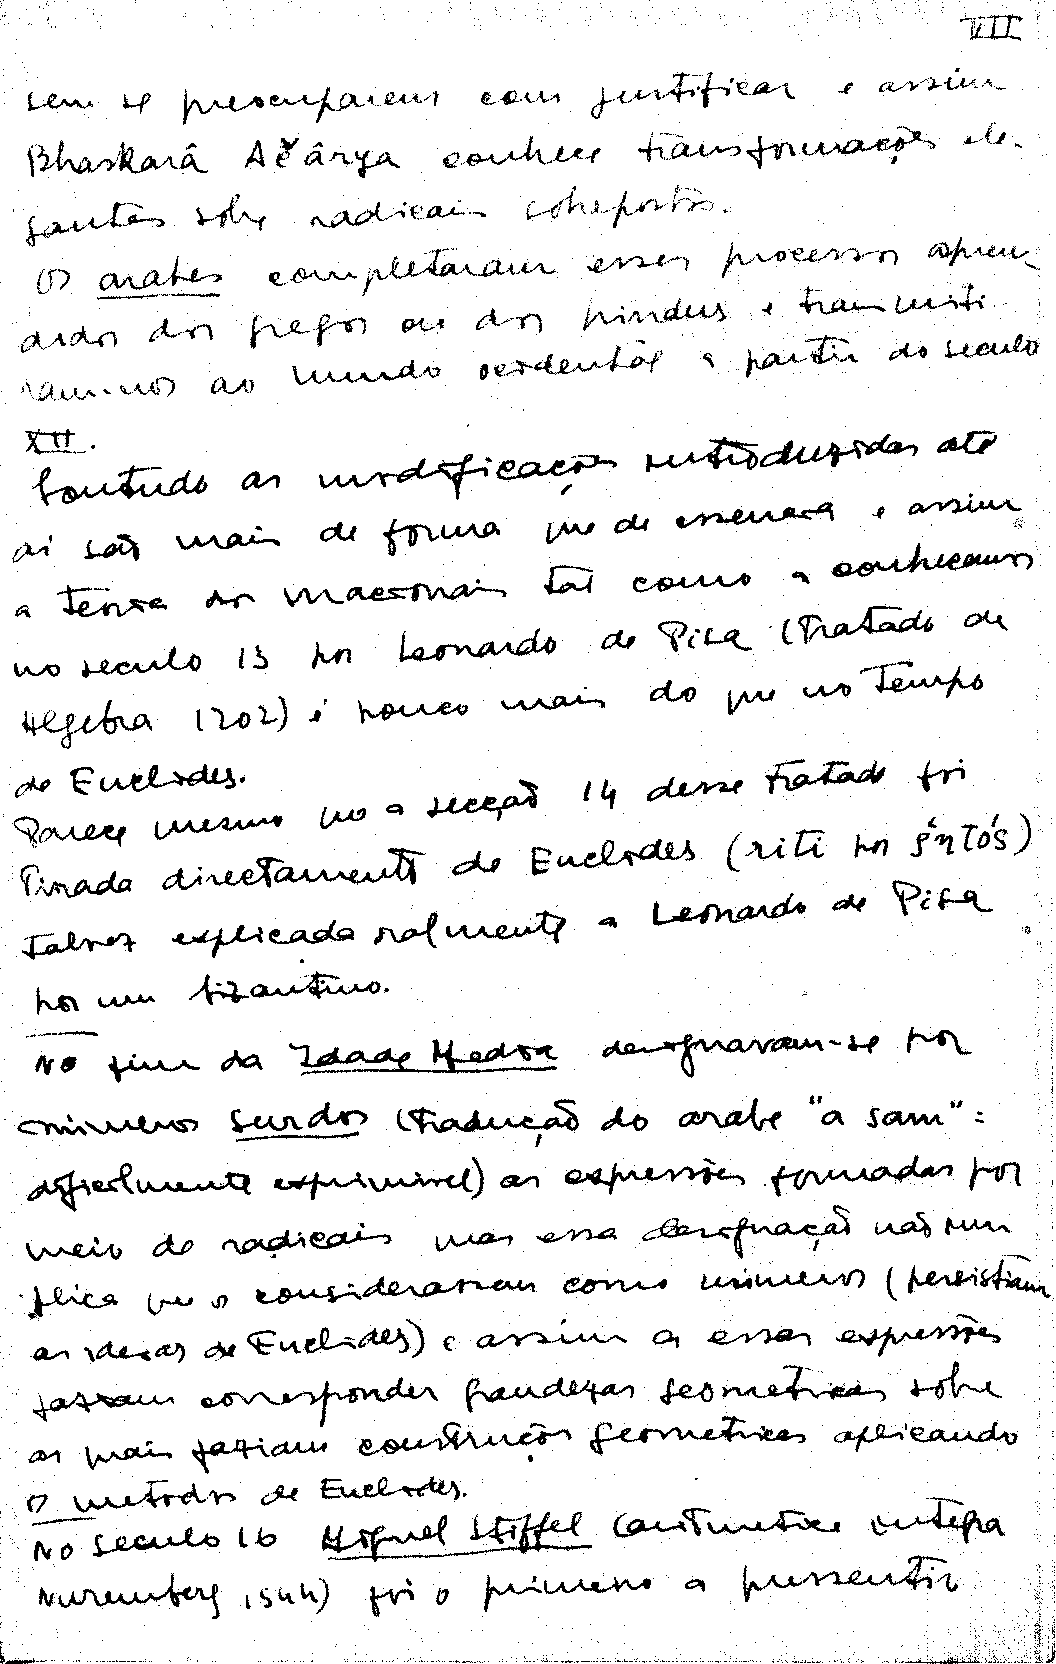 VII
sem se preocuparem com justificar e assim
Bhaskarâ Ačârya conhece transformações ele-
gantes sobre radicais sobrepostos.
Os arabes completaram esses processos apren-
didos dos gregos ou dos hindus e transmiti
ram-nos ao mundo ocidental a partir do seculo
XII.
Contudo as modificações introduzidas até
aí são mais de forma que de essencia e assim
a teoria dos irracionais tal como a conhecemos
no seculo 13 por Leonardo de Pisa (Tratado de
Algebra 1202) é pouco mais do que no tempo
de Euclides.
Parece mesmo que a secção 14 desse tratado foi
tirada directamente de Euclides (riti por ῥητός)
talvez explicada oralmente a Leonardo de Pisa
por um bizantino.
No fim da Idade Media designavam-se por
numeros surdos (tradução do arabe "a sam" :
dificilmente exprimivel) as expressões formadas por
meio de radicais mas essa designação não im
plica que os considerassem como numeros (persistiam
as ideias de Euclides) e assim a essas expressões
faziam corresponder grandezas geometricas sobre
as quais faziam construções geometricas aplicando
os metodos de Euclides.
No seculo 16 Miguel Stiffel (aritmetica integra
Nuremberg 1544) foi o primeiro a pressentir